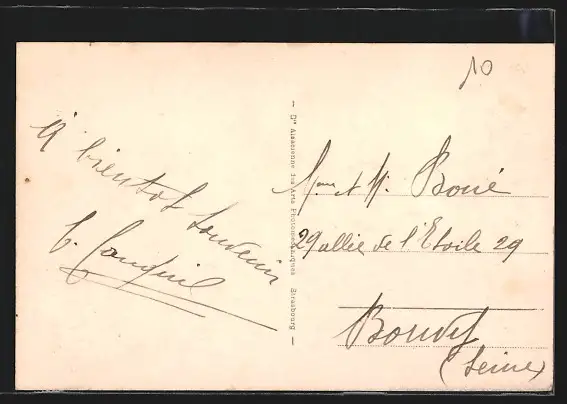 10
A bientot Souvenir
— Cie Alsacienne des Arts Photomécaniques Strasbourg —
Mme et M. Boué
29 allée de l'Etoile 29
Bondy
(Seine)